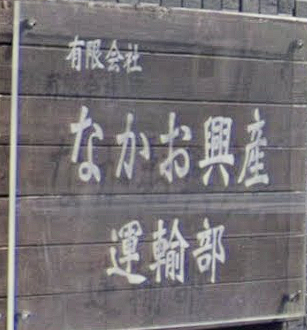 有限会社
なかお興産
運輸部